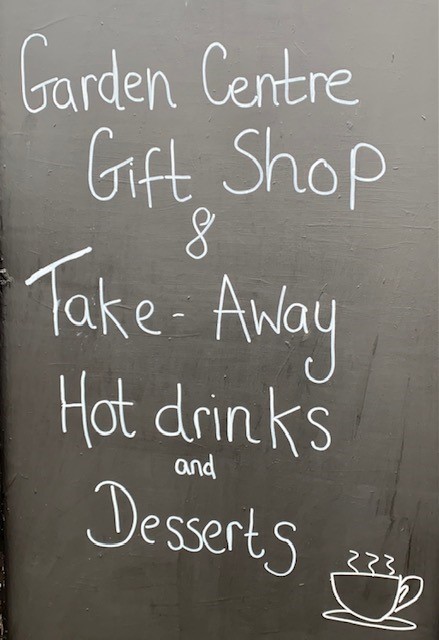 Garden Centre
Gift Shop
&
Take-Away
Hot drinks
and
Desserts